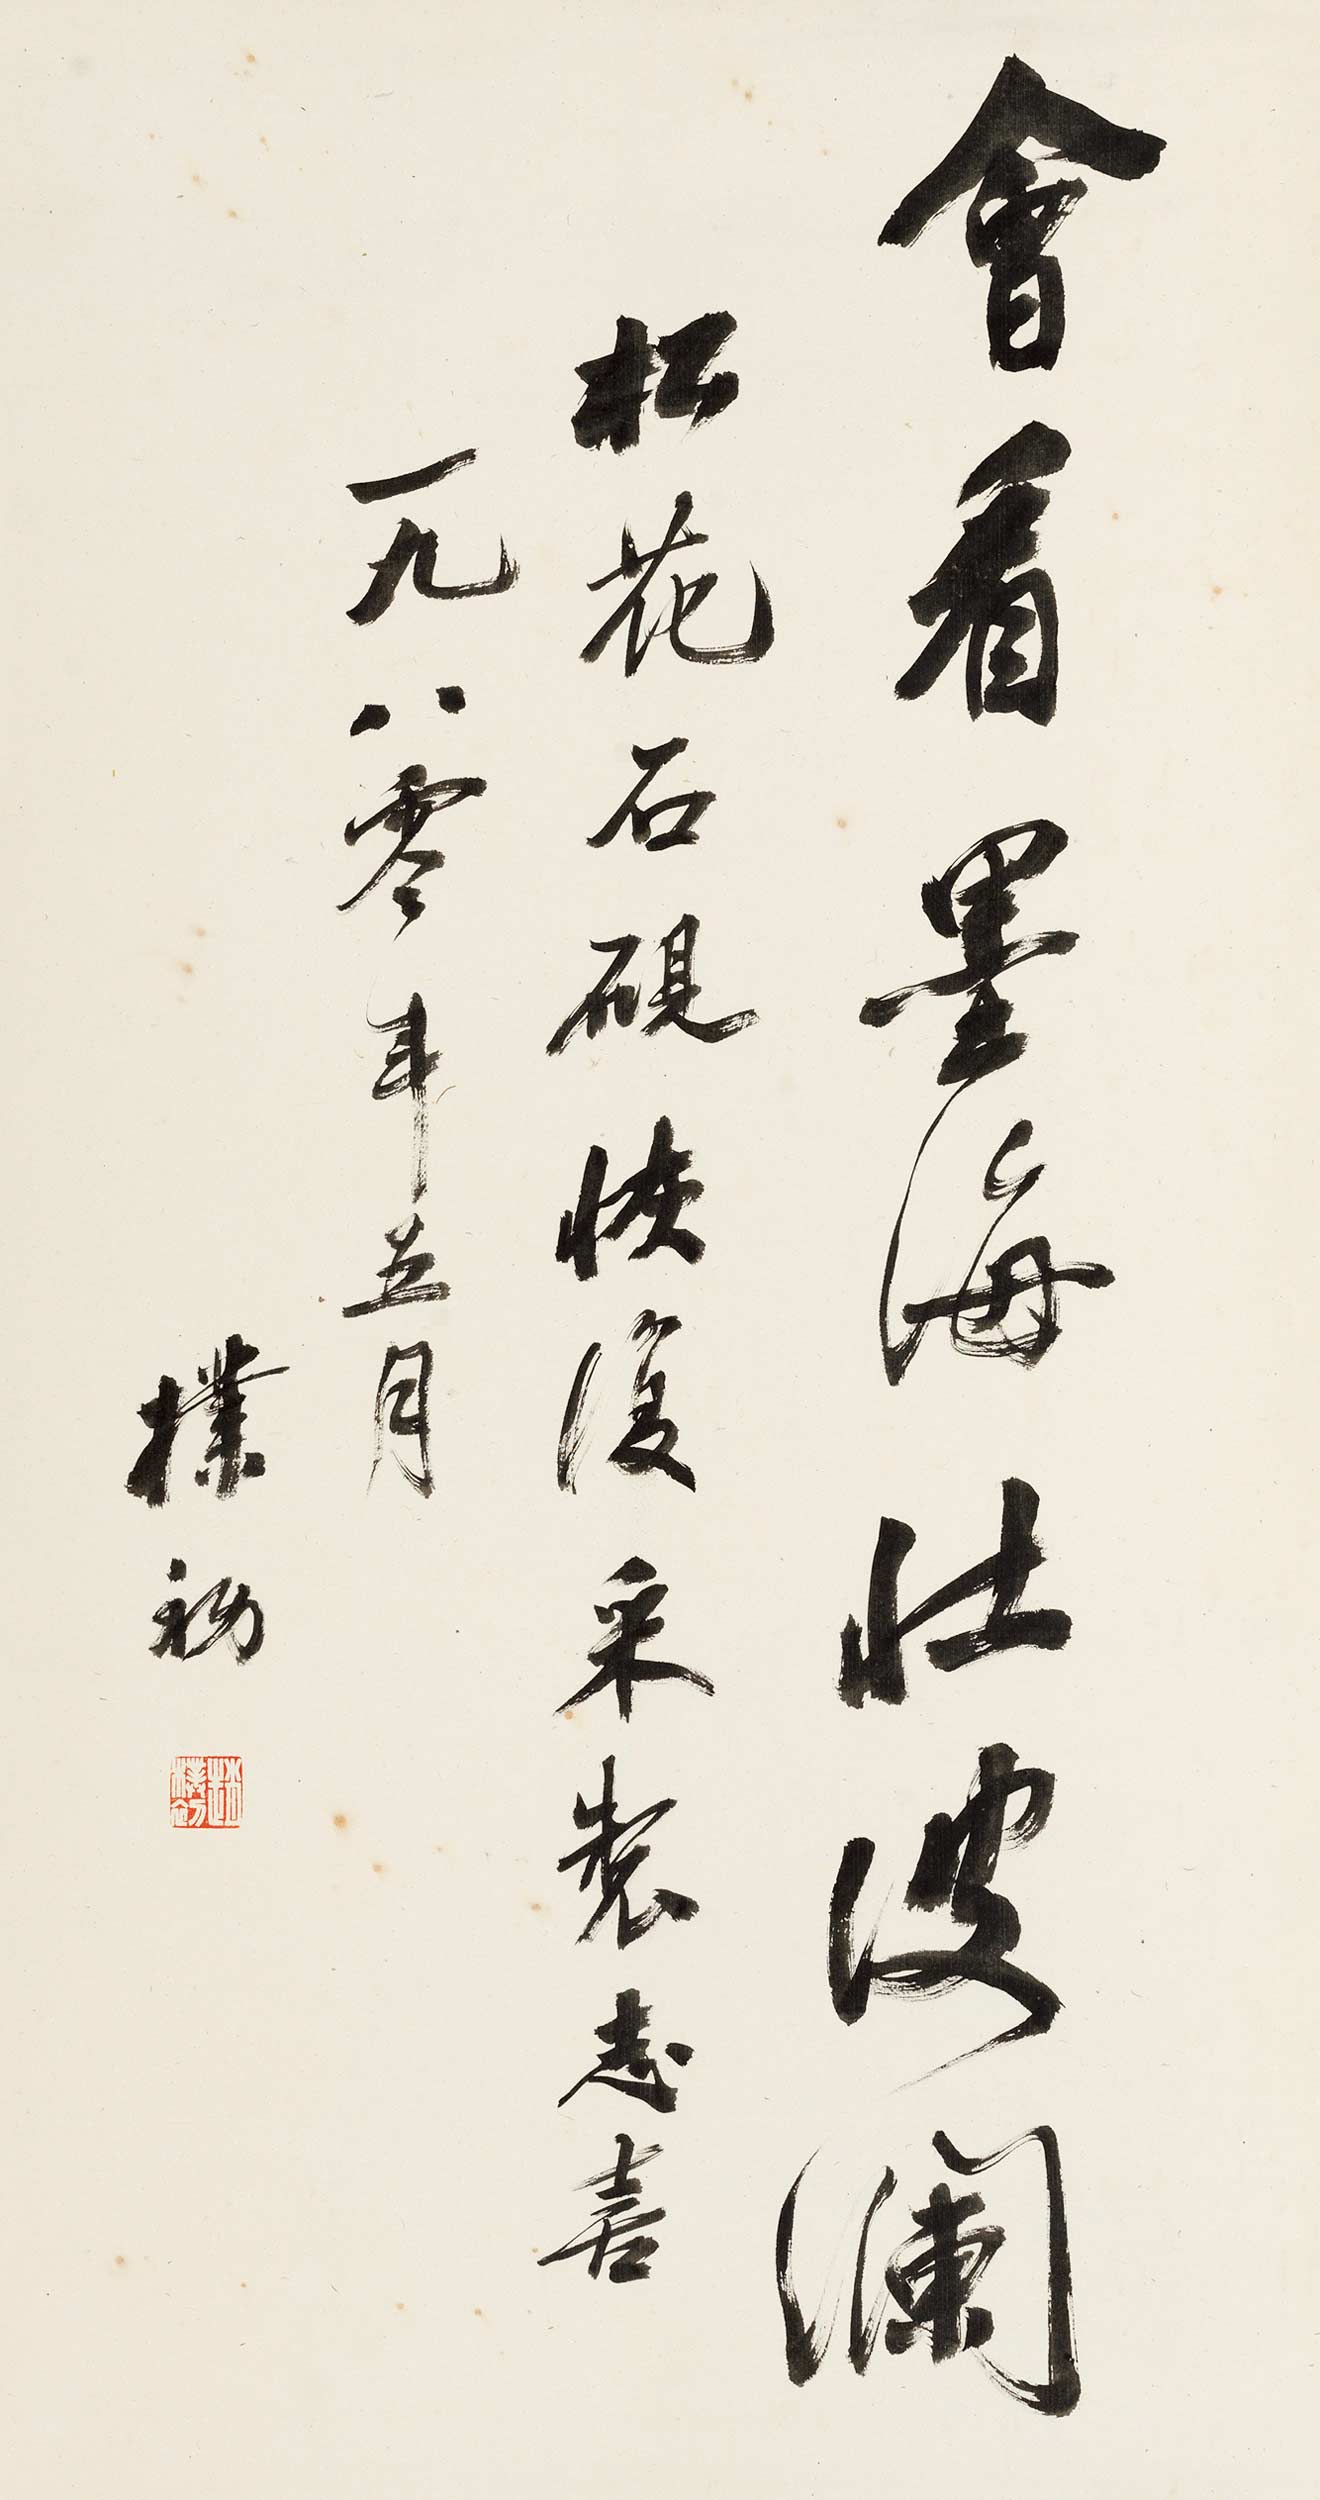 會看墨海壯波瀾
松花石硯恢復采製志喜
一九八零年五月
樸初
趙樸初